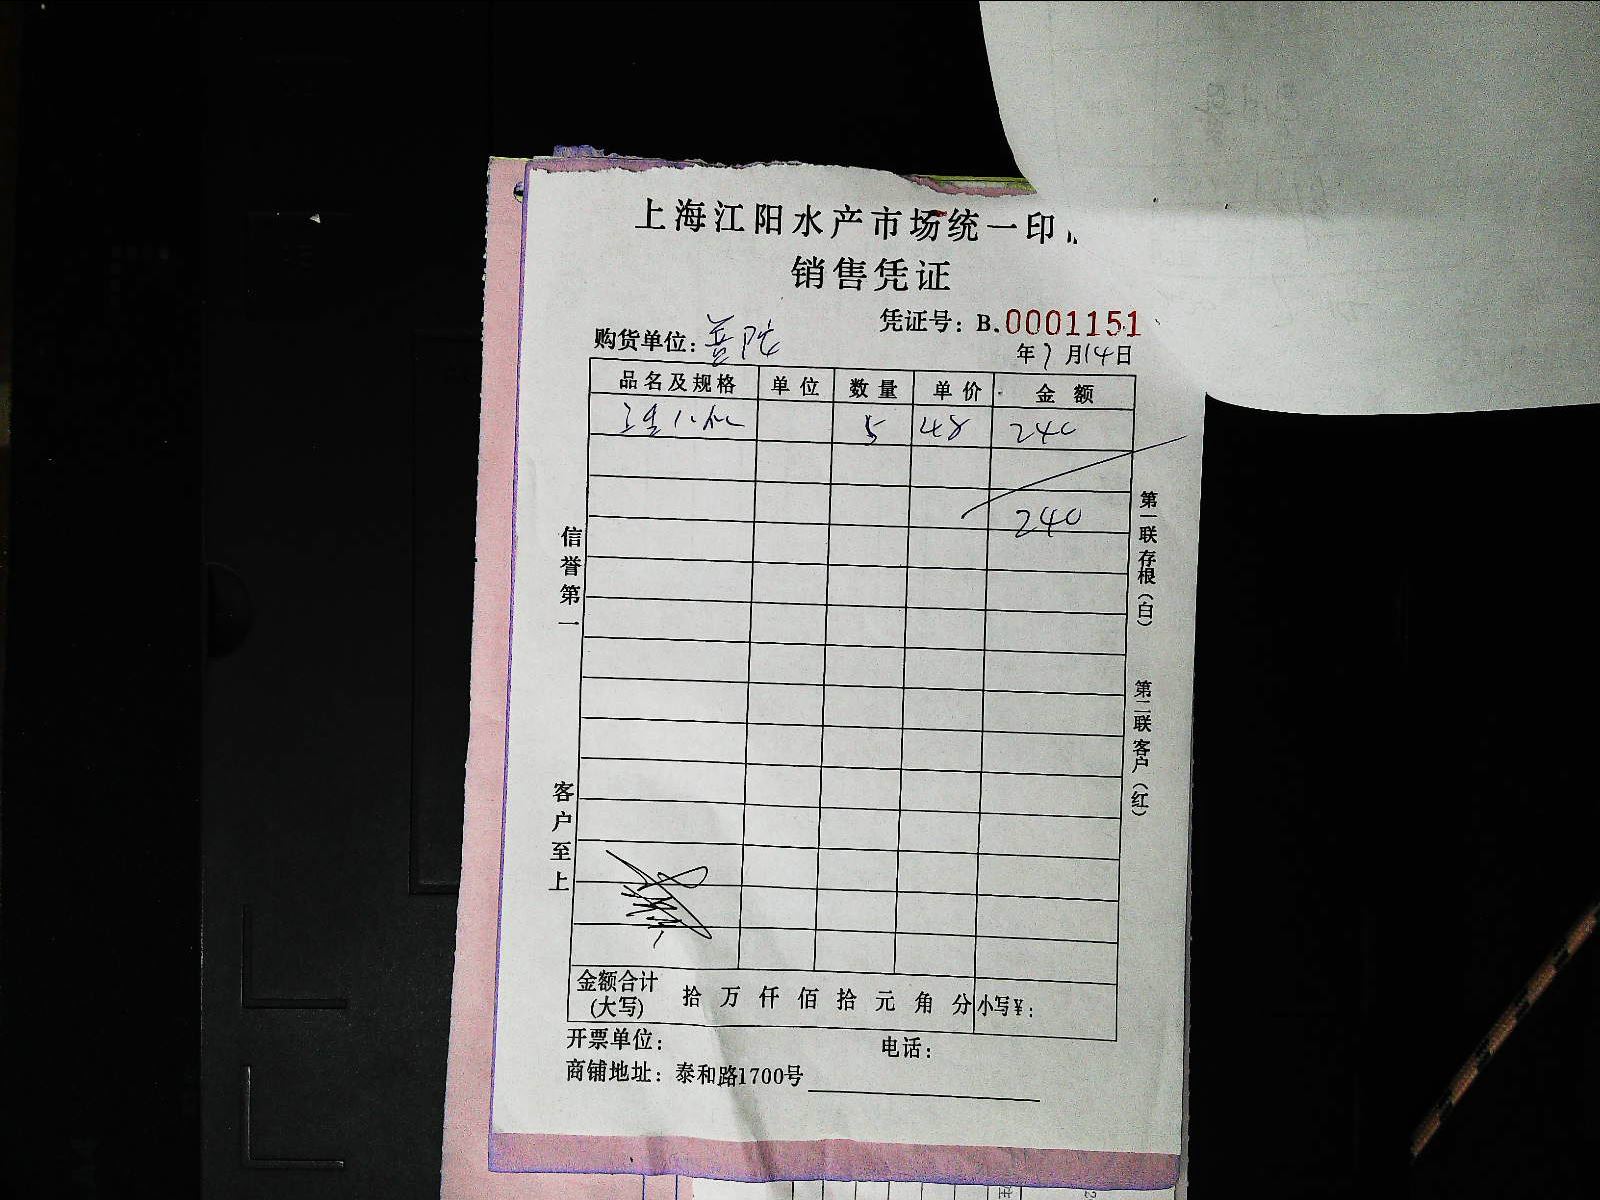 上海江阳水产市场统一印
销售凭证
凭证号：B.0001151
购货单位：普陀
年7月14日
品名及规格 单位 数量 单价 金额
5 48 240
240
信誉第一
客户至上
第一联存根（白）
第二联客户（红）
金额合计（大写） 拾 万 仟 佰 拾 元 角 分 小写¥：
开票单位： 电话：
商铺地址：泰和路1700号